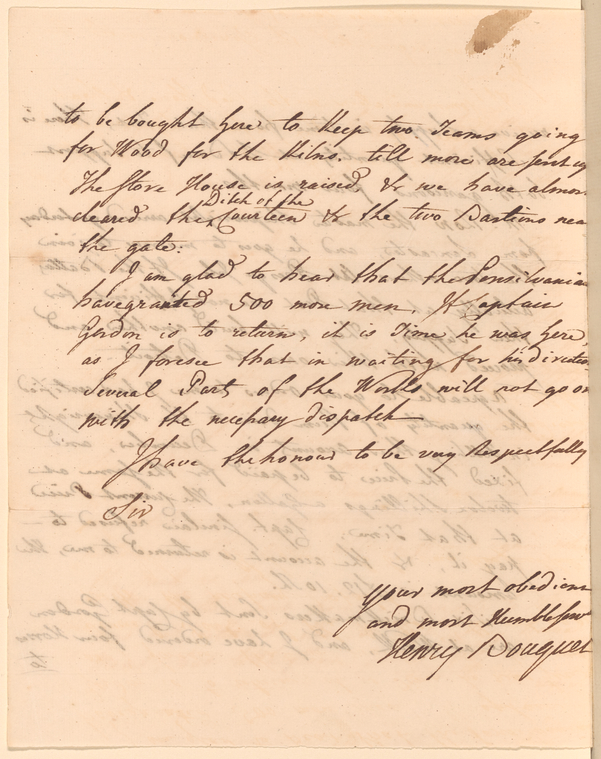 to be bought here to keep two Teams going
for Wood for the Kilns. till more are sent up
The Store House is raised, & we have almos
Ditch of the
cleared the Courteen & the two Bastions nea
the gate:
I am glad to hear that the Pensilvanian
have granted 500 more men, If Captain
Gordon is to return, it is Time he was here,
as I foresee that in waiting for his direction
Several Parts of the Works will not go on
with the necessary dispatch
I have the honour to be very Respectfully
Sir
Your most obedient
and most Humble Serv
Henry Bouquet